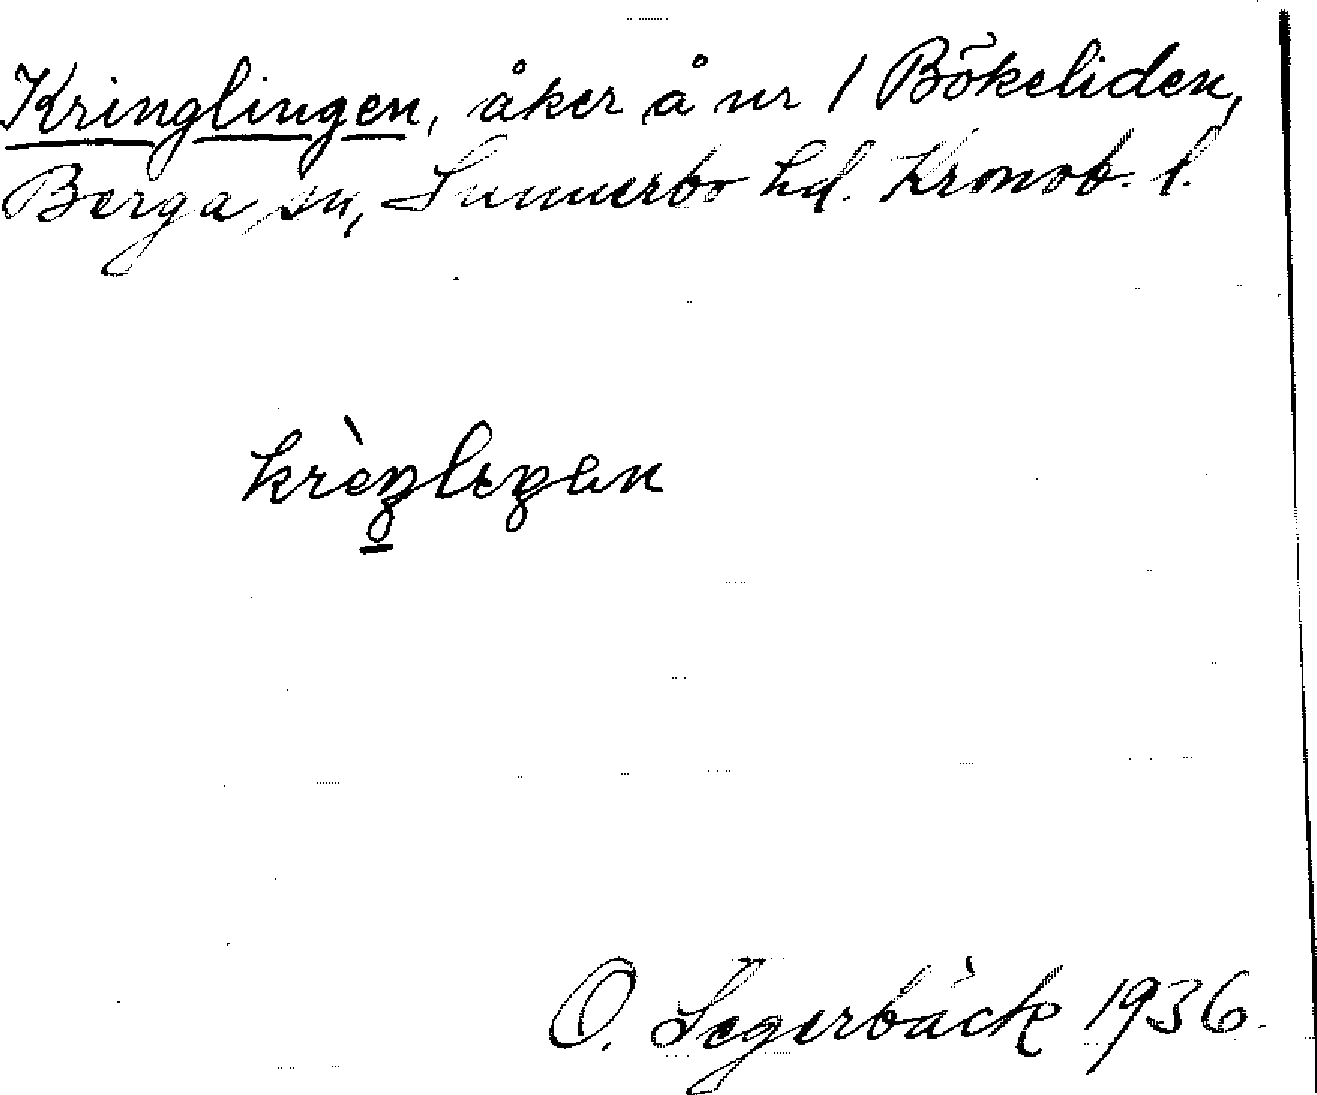 Kringlingen, åker å nr 1 Bökeliden,
Berga sn, Sunnerbo hd. Kronob. l.
krìŋleŋen
O. Segerbäck 1936.